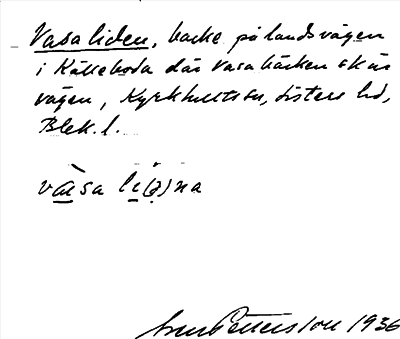 Vasaliden, backe på landsvägen
i Källeboda där Vasabäcken skär
vägen, Kyrkhults sn, Listers hd,
Blek. l.
vàsa li(ə)na
Pettersson 1936